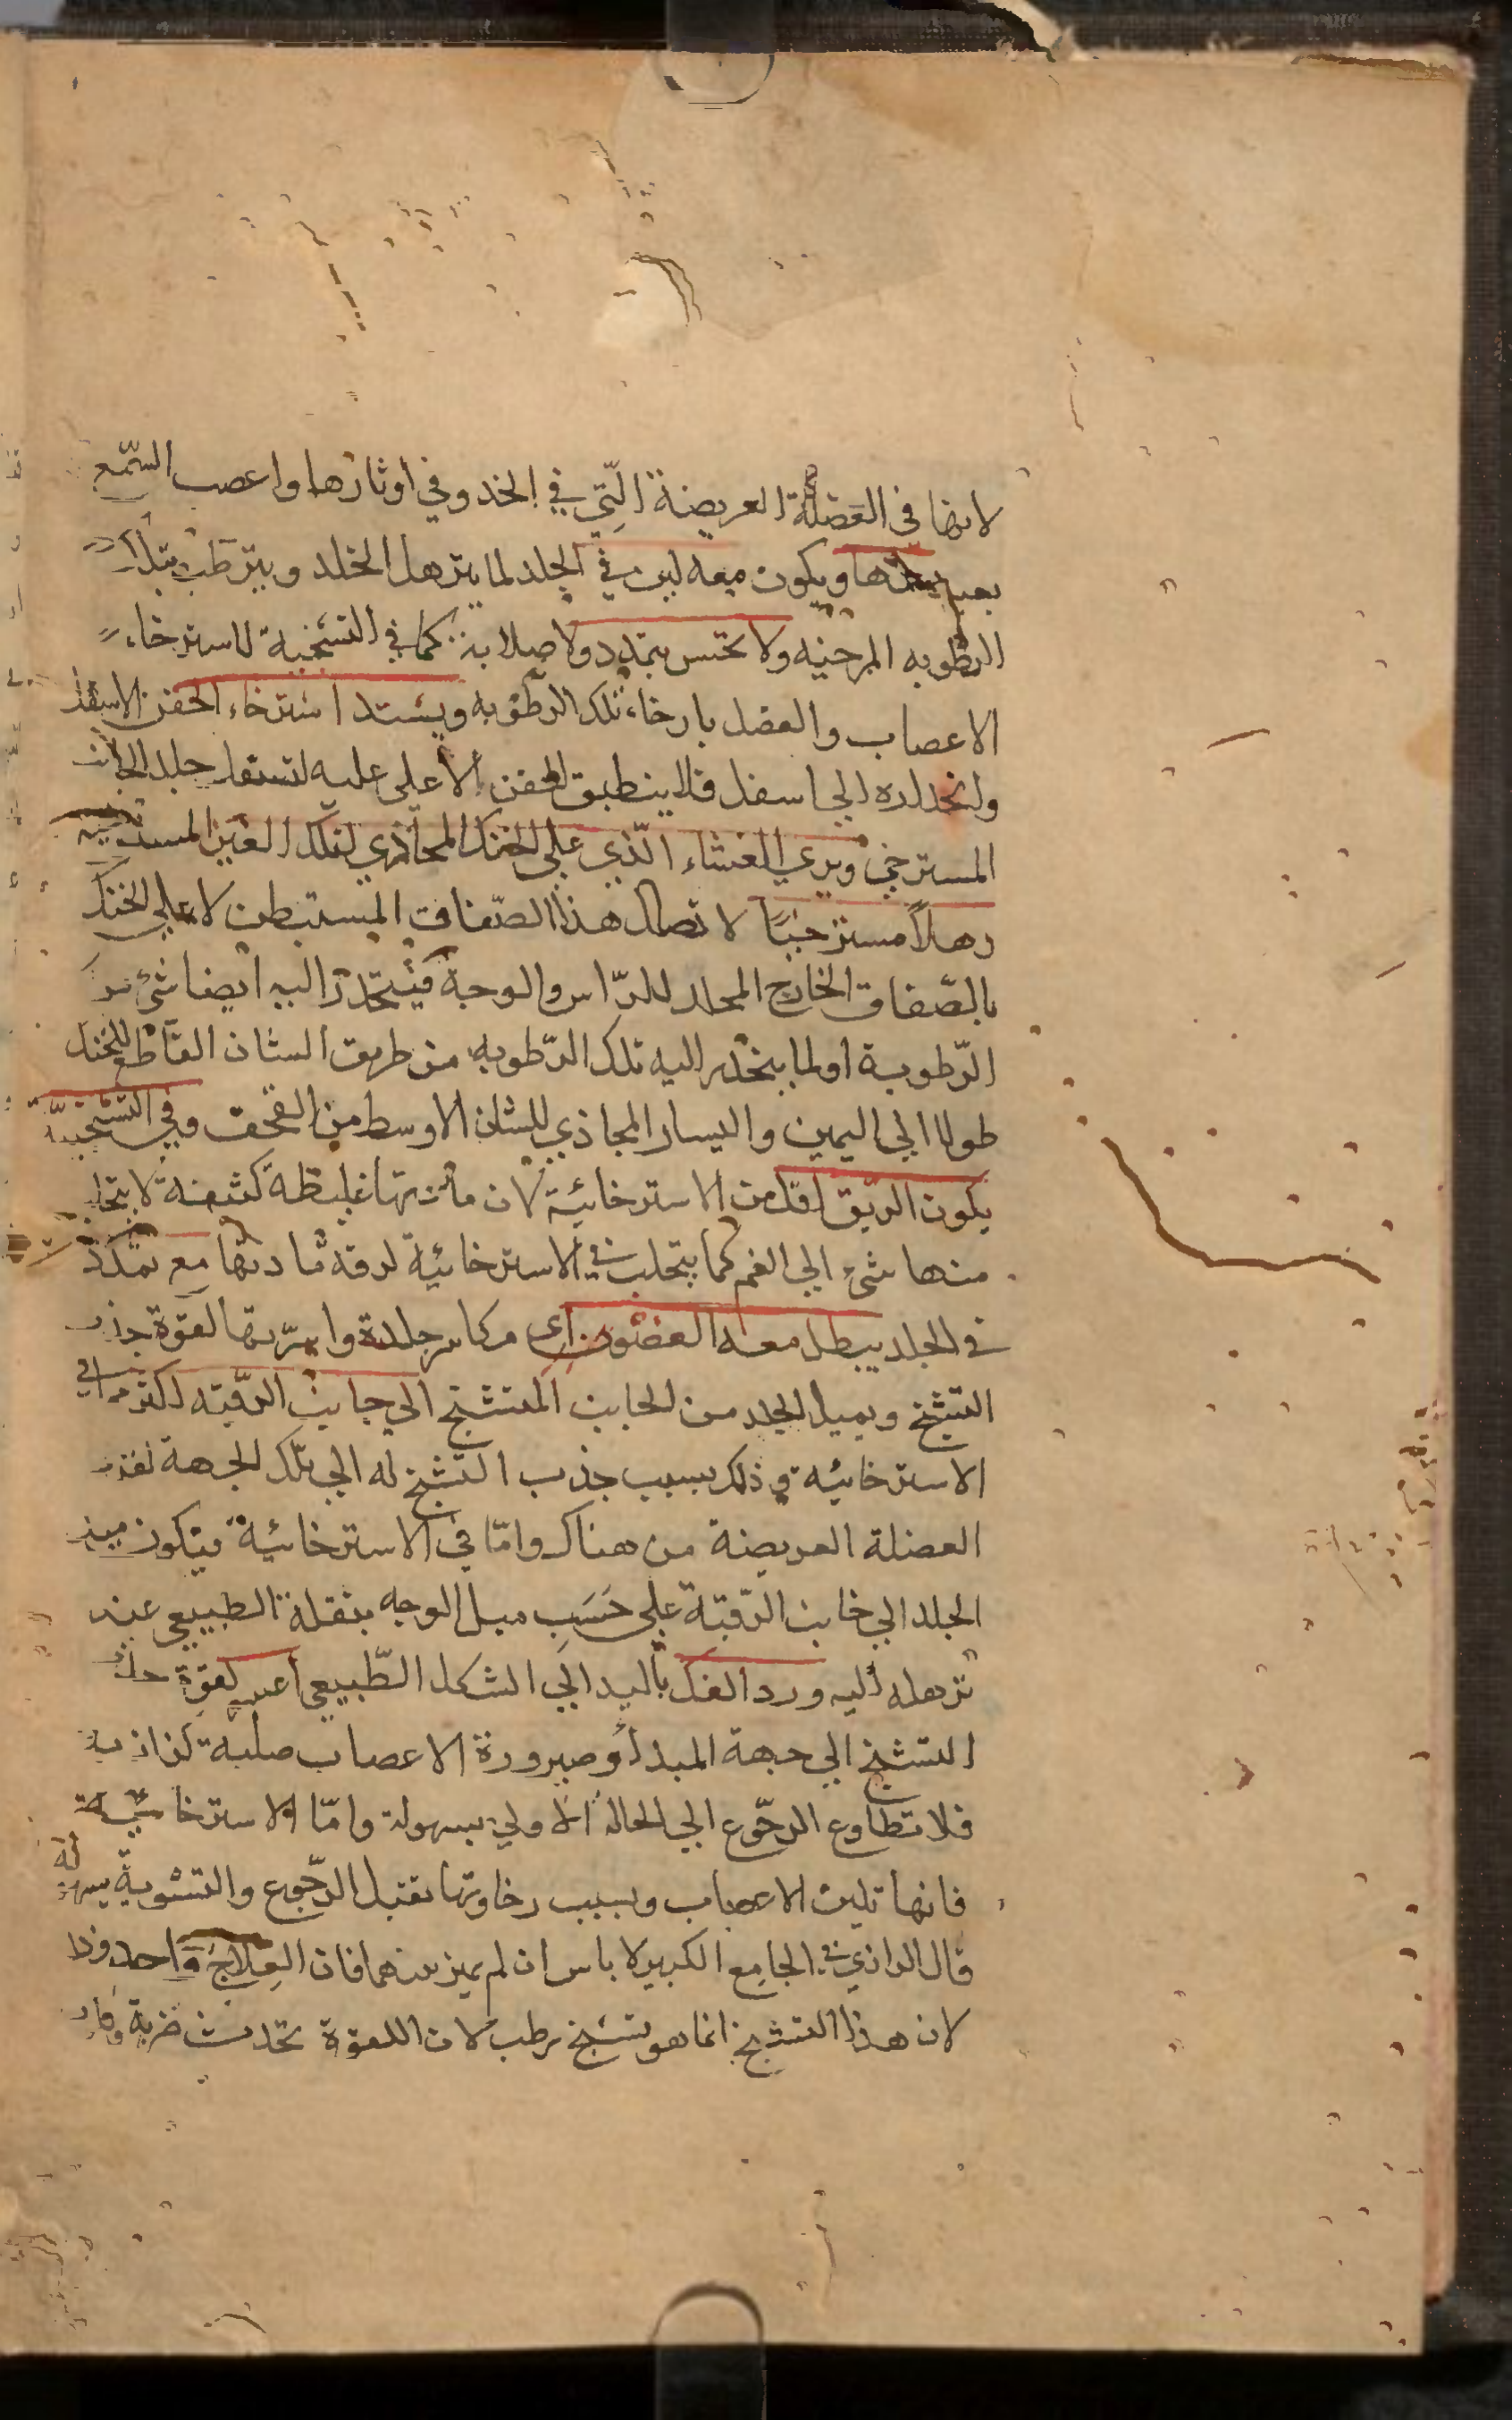 لانها في العضلة العريضة التي في الخد وفي اوتارها واعصب السمع
ويكون معه لين في الجلد لما يترهل الجلد ويترطب بتلك
الرطوبه المرخيه ولا يحس بتمدد ولا صلابة كما في التشنجية لاسترخاء
الاعصاب والعضل بارخاء تلك الرطوبه ويشتد استرخاء الجفن الاسفل
وانحداره الي اسفل فلا ينطبق الجفن الاعلي عليه لتسفل جلد الجانب
المسترخي ويري الغشاء الذي علي الحنك المحاذي لتلك العين المسترخيه
رهلاً مسترخيًا لاتصال هذا الصفاق المستبطن لاعلي الحنك
بالصفاق الخارج المجلد للراس والوجه فينحدر اليه ايضا شئ من
الرطوبة او لما ينحدر اليه تلك الرطوبه من طريق الشان القاطع للحنك
طولا الي اليمين واليسار المحاذي للشان الاوسط من القحف وفي التشنجية
يكون الريق اقل من الاسترخائية لان مادتها غليظة كثيفة لا يتحلب
منها شئ الي الفم كما يتحلب في الاسترخائية لرقة مادتها مع تمدد
في الجلد يبطل معه الغضون اي مكاسر جلدة واسرتها لقوة جذب
التشنج ويميل الجلد من الجانب المتشنج الي جانب الرقبة اكثر مما في
الاسترخائية وذلك بسبب جذب التشنج له الي تلك الجهة لتقدر
العضلة العريضة من هناك واما في الاسترخائية فيكون ميل
الجلد الي جانب الرقبة علي حَسَب ميل الوجه بثقله الطبيعي عند
ترهله اليه ورد الفك باليد الي الشكل الطبيعي اعسر لقوة جذب
التشنج الي جهة المبدأ وصيرورة الاعصاب صلبة كزازية
فلا تطاوع الرجوع الي الحالة الاولي بسهولة واما الاسترخائية
فانها تلين الاعصاب وبسبب رخاوتها تقبل الرجوع والتسوية بسهولة
قال الرازي في الجامع الكبير لا باس ان لم يميز بينهما فان العلاج واحد وذا
لان هذا التشنج انما هو تشنج رطب لان اللقوة تحدث ضربة وكان